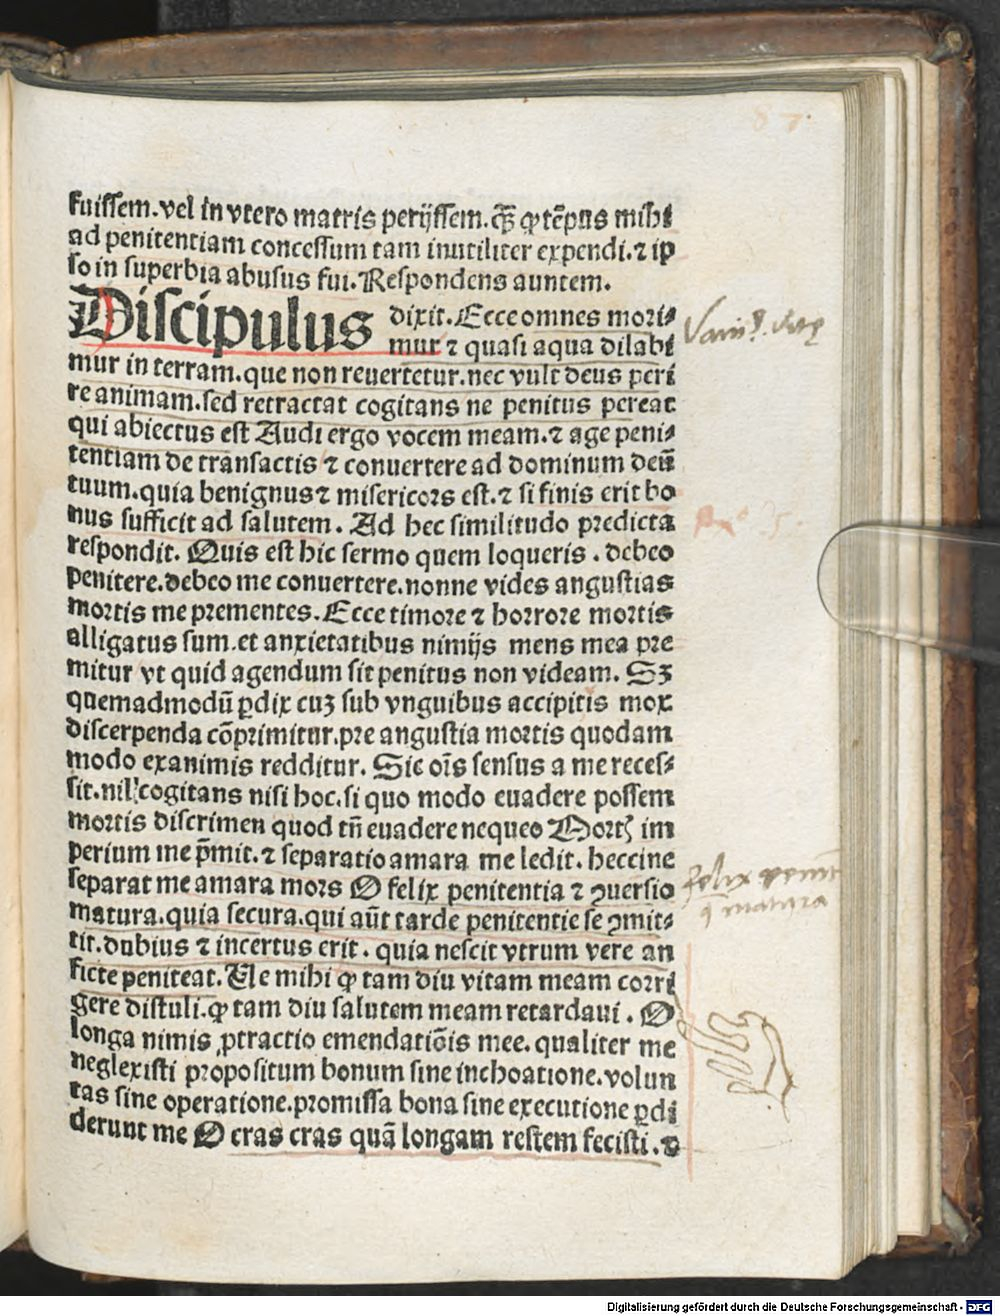 87.
fuissem.vel in vtero matris perijssem.qꝫ ꝙ tēpus mihi
ad penitentiam concessum tam inutiliter expendi.⁊ ip
so in superbia abusus fui. Respondens auntem.
Discipulus dixit. Ecce omnes mori⸗
mur ⁊ quasi aqua dilabi
mur in terram.que non reuertetur.nec vult deus peri
re animam.sed retractat cogitans ne penitus pereat
qui abiectus est Audi ergo vocem meam.⁊ age peni⸗
tentiam de transactis ⁊ conuertere ad dominum deū
tuum.quia benignus ⁊ misericors est.⁊ si finis erit bo
nus sufficit ad salutem. Ad hec similitudo predicta
respondit. Quis est hic sermo quem loqueris. debeo
penitere.debeo me conuertere.nonne vides angustias
mortis me prementes. Ecce timore ⁊ horrore mortis
alligatus sum.et anxietatibus nimijs mens mea pre
mitur vt quid agendum sit penitus non videam. Sꝫ
quemadmodū ꝑdix cuꝫ sub vnguibus accipitis mox
discerpenda cōprimitur.pre angustia mortis quodam
modo exanimis redditur. Sic oīs sensus a me reces⸗
sit.nil cogitans nisi hoc.si quo modo euadere possem
mortis discrimen quod tñ euadere nequeo Mortꝭ im
perium me p̄mit.⁊ separatio amara me ledit. heccine
separat me amara mors O felix penitentia ⁊ ꝯuersio
matura.quia secura.qui aūt tarde penitentie se ꝯmit⸗
tit.dubius ⁊ incertus erit. quia nescit vtrum vere an
ficte peniteat. Ve mihi ꝙ tam diu vitam meam corri
gere distuli.ꝙ tam diu salutem meam retardaui. O
longa nimis ꝓtractio emendatiōis mee. qualiter me
neglexisti propositum bonum sine inchoatione.volun
tas sine operatione.promissa bona sine executione ꝑdi
derunt me O cras cras quā longam restem fecisti. v
felix penit
matura
Digitalisierung gefördert durch die Deutsche Forschungsgemeinschaft - DFG